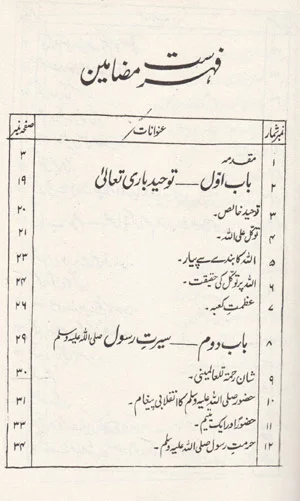 فہرست مضامین
نمبر شمار عنوانات صفحہ نمبر
۱ مقدمہ ۳
۲ باب اوّل — توحید باری تعالیٰ ۱۹
۳ توحید خالص۔ ۲۰
۴ توکل علی اللہ۔ ۲۱
۵ اللہ کا بندے سے پیار۔ ۲۳
۶ اللہ پر توکل کی حقیقت۔ ۲۴
۷ عظمتِ کعبہ۔ ۲۶
۸ باب دوم — سیرتِ رسول صلی اللہ علیہ وسلم ۲۹
۹ شان رحمۃ للعالمینی۔ ۳۰
۱۰ حضور صلی اللہ علیہ وسلم کا انقلابی پیغام۔ ۳۱
۱۱ حضورؐ اور ایک یتیم۔ ۳۳
۱۲ حرمتِ رسول صلی اللہ علیہ وسلم۔ ۳۴